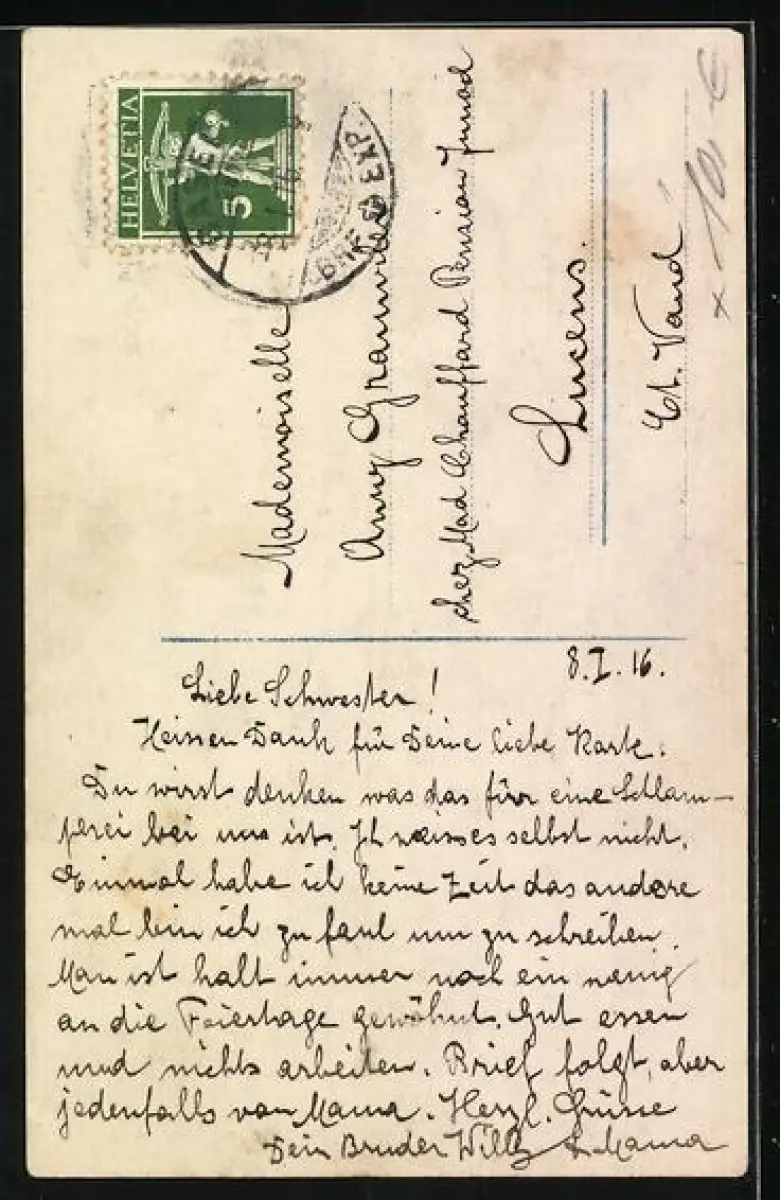 HELVETIA
5
BRIEF EXP.
Mademoiselle
Anny
chez Mad Chauffard Pension Junod
Lucens.
Ct. Vaud
x 10,- €
8.I.16.
Liebe Schwester!
Heissen Dank für Deine liebe Karte.
Du wirst denken was das für eine Schlam-
perei bei uns ist. Ich weiss es selbst nicht.
Einmal habe ich keine Zeit das andere
mal bin ich zu faul um zu schreiben.
Man ist halt immer noch ein wenig
an die Feiertage gewöhnt. Gut essen
und nichts arbeiten. Brief folgt, aber
jedenfalls von Mama. Herzl. Grüsse
Dein Bruder Willy & Mama